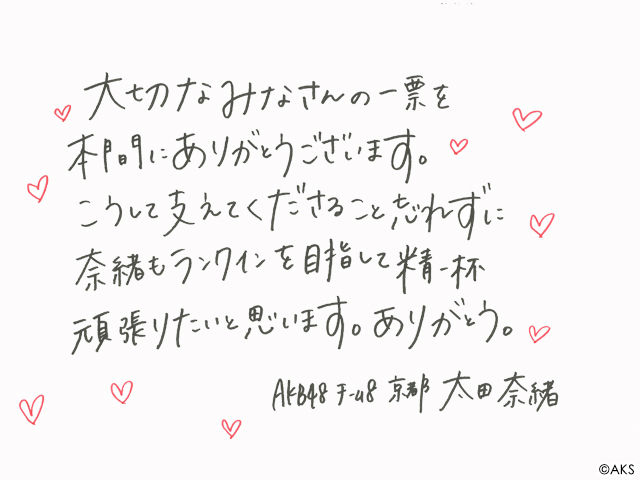 大切なみなさんの一票を
本間にありがとうございます。
こうして支えてくださること忘れずに
奈緒もランクインを目指して精一杯
頑張りたいと思います。ありがとう。
AKB48 チーム8 京都 太田奈緒
©AKS